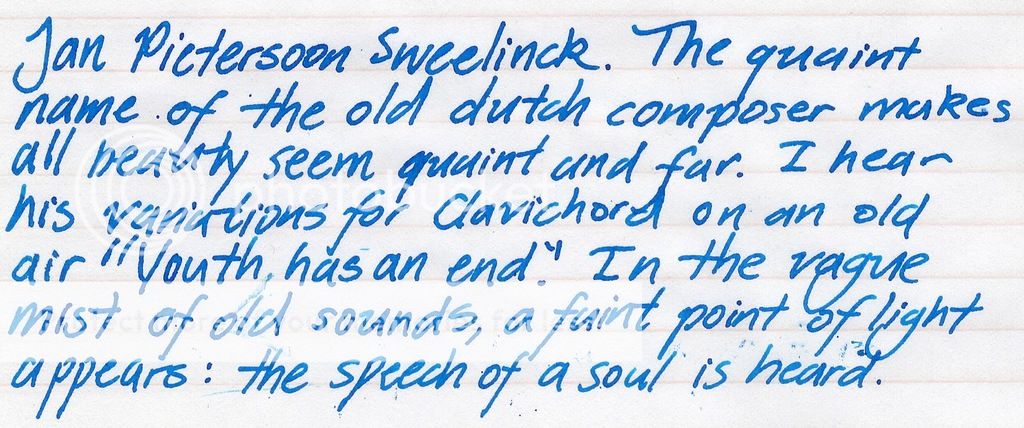 Jan Pietersoon Sweelinck. The quaint
name of the old dutch composer makes
all beauty seem quaint and far. I hear
his variations for clavichord on an old
air "Youth has an end." In the vague
mist of old sounds, a faint point of light
appears: the speech of a soul is heard.
photobucket